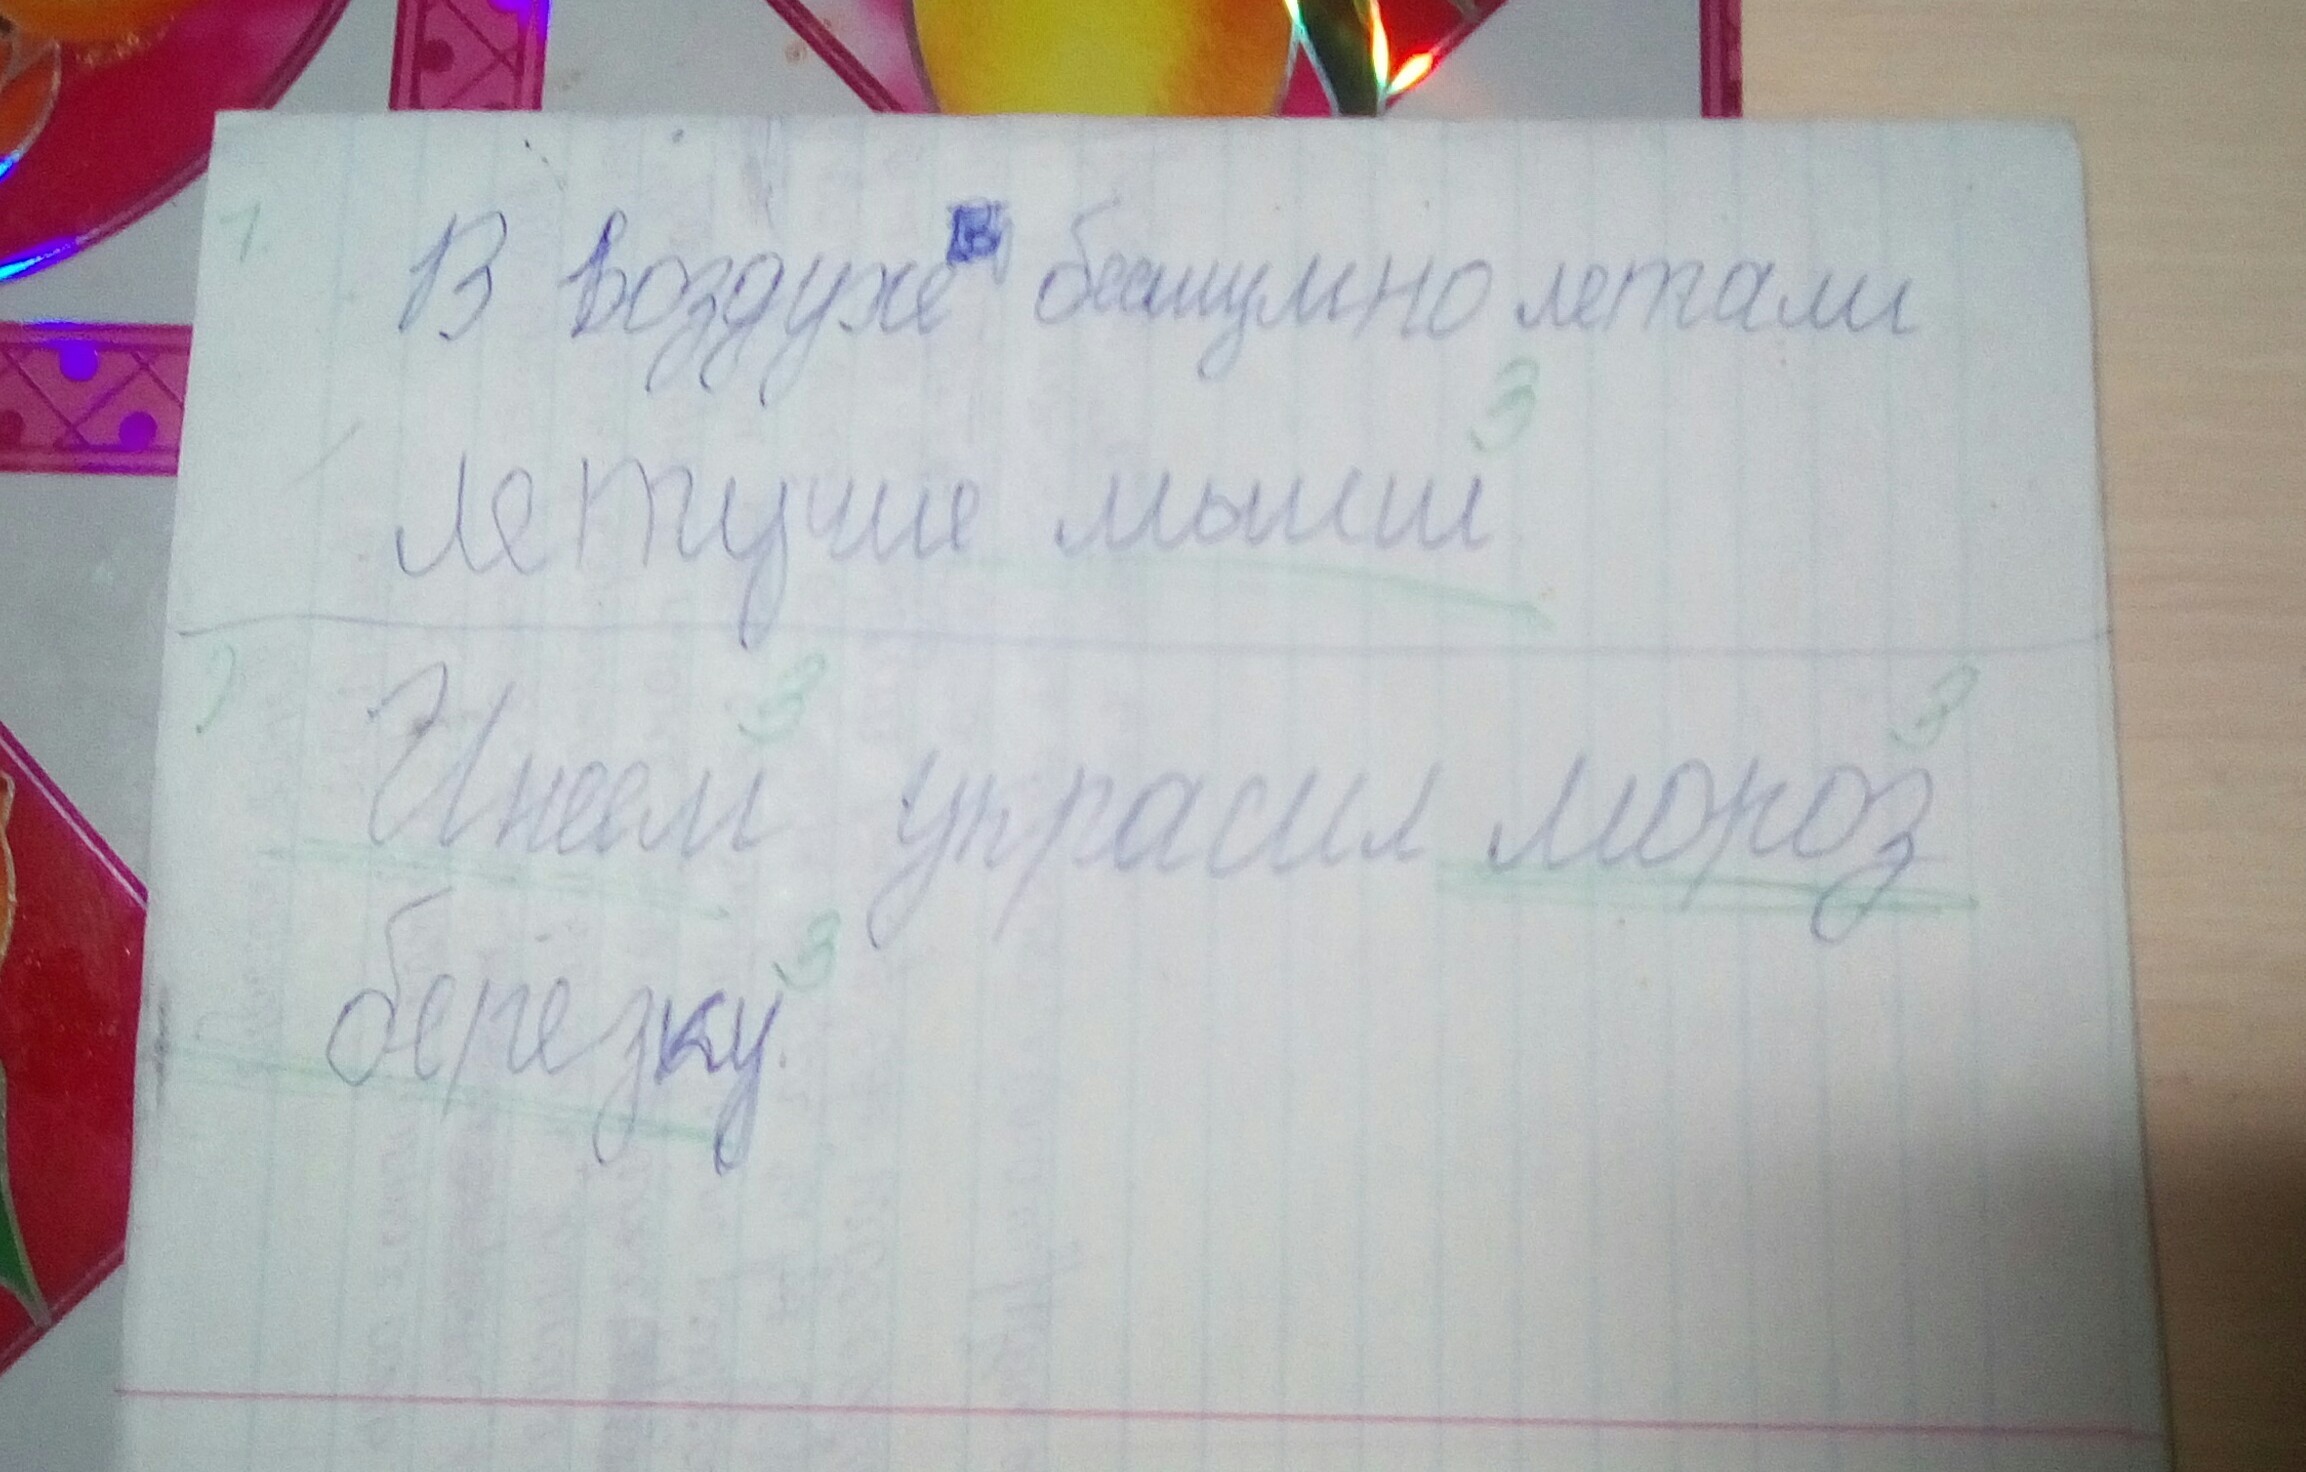 1. В воздухе бесшумно летали
летучие мыши 3
2 Инеем 3 украсил мороз 3
берёзку 3